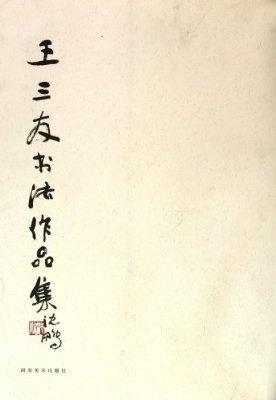 王三友书法作品集
沈鹏
河南美术出版社